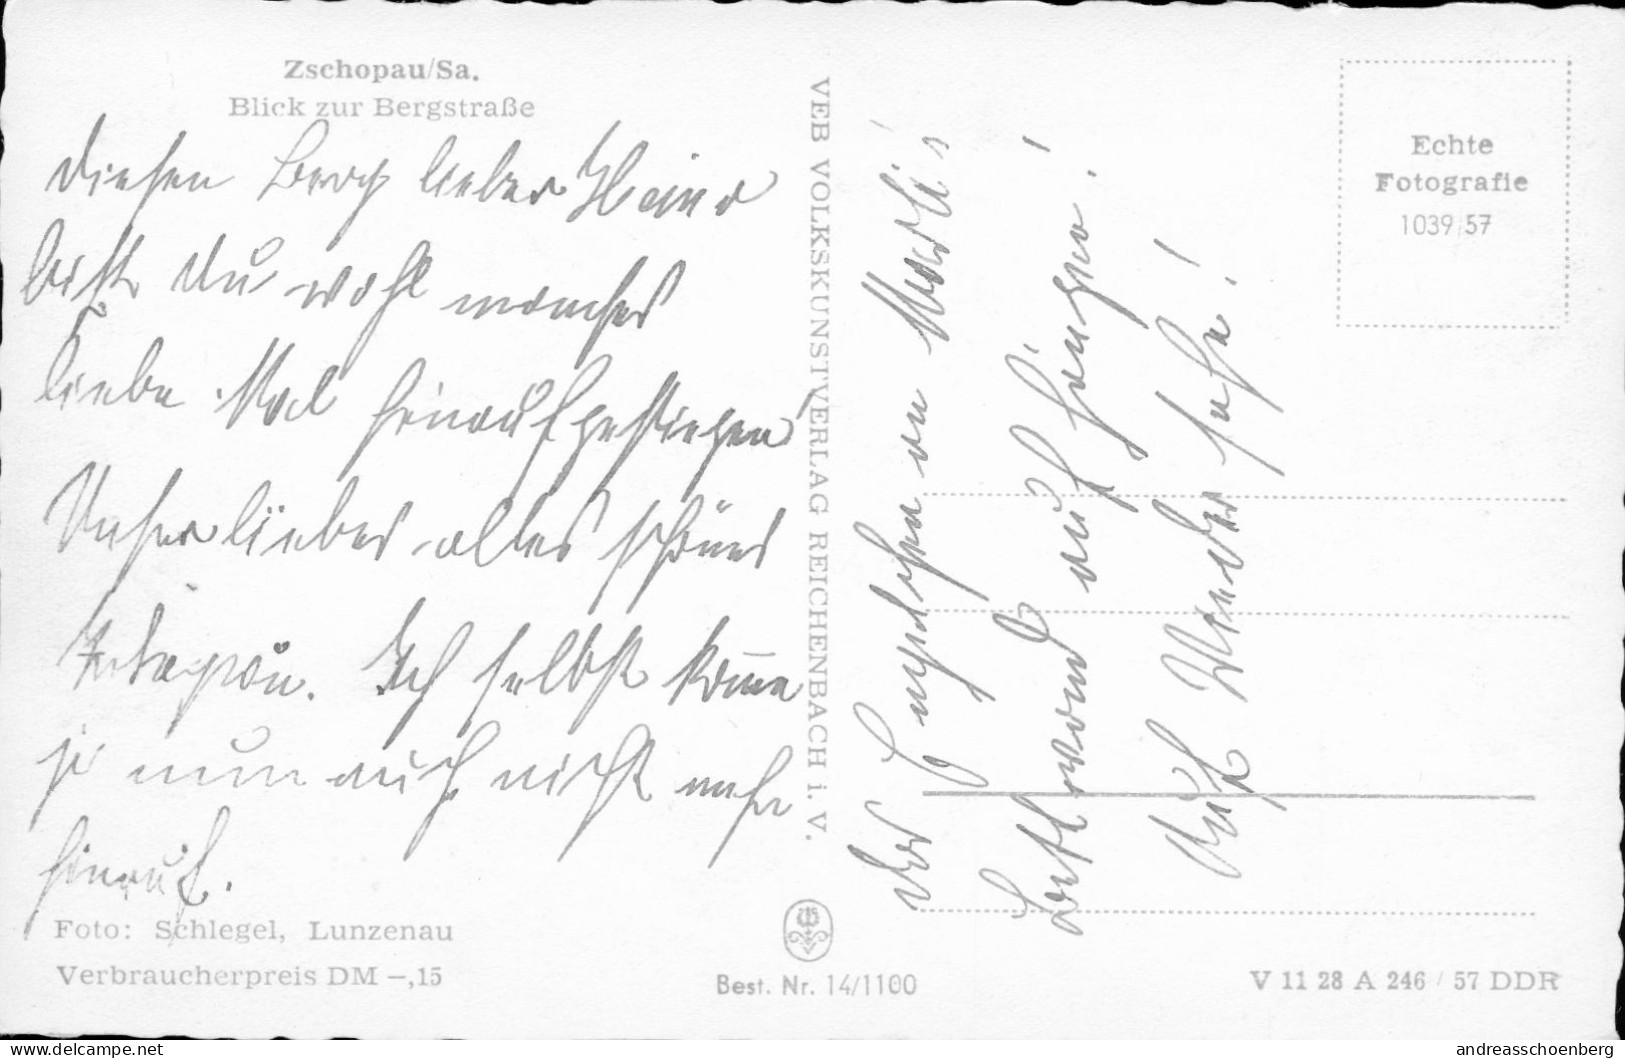 Zschopau/Sa.
Blick zur Bergstraße
Diesen Berg lieber Heinz
bist du wohl manches
liebe Mal hinaufgestiegen
Unser liebes altes schönes
Zschopau. Ich selbst komme
ja nun auch nicht mehr
hinauf.
Foto: Schlegel, Lunzenau
Verbraucherpreis DM –,15
VEB VOLKSKUNSTVERLAG REICHENBACH i. V.
Best. Nr. 14/1100
Das
an
Bettwand aufhängen!
Auf Wiedersehn!
Echte
Fotografie
1039/57
V 11 28 A 246 / 57 DDR
https://www.delcampe.net
andreasschoenberg